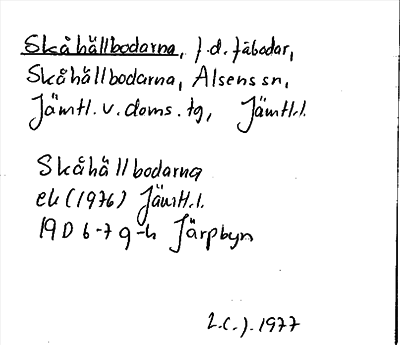 Skåhällbodarna, f.d. fäbodar,
Skåhällbodarna, Alsens sn,
Jämtl. v. doms. tg, Jämtl.l.
Skåhällbodarna
ek (1976) Jämtl.l.
19D 6-7 g-h Järpbyn
L.C.J. 1977